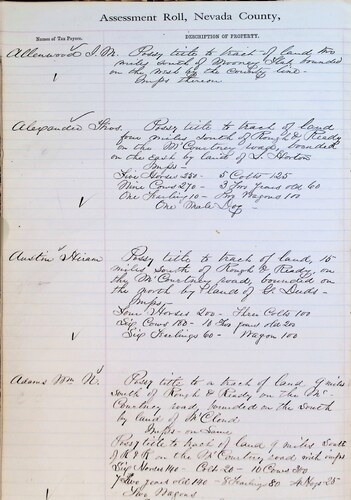 Assessment Roll, Nevada County,
Names of Tax Payers.
DESCRIPTION OF PROPERTY.
Allenwood J. M. Possy title to tract of land two
miles south of Mooney Flat bounded
on the West by the County line
Imps thereon
Alexander Bros. Possy title to tract of land
four miles south of Rough & Ready
on the McCourtney road, bounded
on the east by land of J. Horton
Imps –
Five Horses 250 – 5 Colts 125
Nine Cows 270 – 3 Two Years old 60
One Yearling 10 – Two Wagons 100
One Male Dog –
Austin Hiram Possy title to tract of land, 15
miles South of Rough & Ready, on
the McCourtney road, bounded on
the north by land of G. Duds –
Imps –
Four Horses 200 – Three Colts 100
Six Cows 180 – 10 Two years old 200
Six Yearlings 60 – Wagon 100
Adams Wm N. Possy title to a tract of land 9 miles
South of Rough & Ready on the Mc
Courtney road, bounded on the South
by land of McCloud
Imps – on Same
Possy title to tract of land 9 miles South
of R & R on the McCourtney road with imps
Six Horses 140 – Colt 20 – 10 Cows 300
7 Two years old 140 – 8 Yearlings 80 4 Hogs 25
Two Wagons